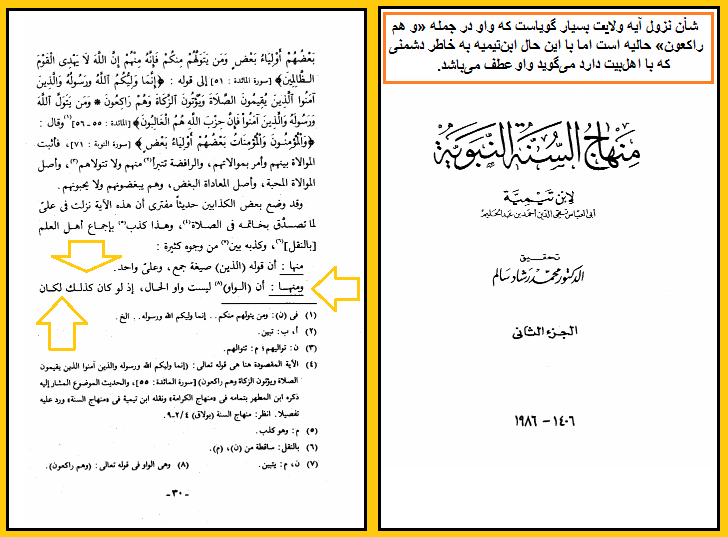 شأن نزول آیه ولایت بسیار گویاست که واو در جمله «و هم
راکعون» حالیه است اما با این حال ابن‌تیمیه به خاطر دشمنی
که با اهل‌بیت دارد می‌گوید واو عطف می‌باشد.
منهاج السنة النبوية
لابن تيمية
أبي العباس تقي الدين أحمد بن عبد الحليم
تحقيق
الدكتور محمد رشاد سالم
الجزء الثاني
١٤٠٦ - ١٩٨٦
بَعْضُهُمْ أَوْلِيَاءُ بَعْضٍ وَمَن يَتَوَلَّهُم مِنكُمْ فَإِنَّهُ مِنْهُمْ إِنَّ اللَّهَ لَا يَهْدِي الْقَوْمَ
الظَّالِمِينَ﴾ [سورة المائدة : ٥١] إلى قوله : ﴿إِنَّمَا وَلِيُّكُمُ اللَّهُ وَرَسُولُهُ وَالَّذِينَ
آمَنُوا الَّذِينَ يُقِيمُونَ الصَّلَاةَ وَيُؤْتُونَ الزَّكَاةَ وَهُمْ رَاكِعُونَ * وَمَن يَتَوَلَّ اللَّهَ
وَرَسُولَهُ وَالَّذِينَ آمَنُوا فَإِنَّ حِزْبَ اللَّهِ هُمُ الْغَالِبُونَ﴾ [المائدة : ٥٥ - ٥٦](١) وقال :
﴿وَالْمُؤْمِنُونَ وَالْمُؤْمِنَاتُ بَعْضُهُمْ أَوْلِيَاءُ بَعْضٍ﴾ [سورة التوبة : ٧١] ، فأثبت
الموالاة بينهم وأمر بموالاتهم، والرافضة تتبرأ(٢) منهم ولا تتولاهم(٣)، وأصل
الموالاة المحبة، وأصل المعاداة البغض، وهم يبغضونهم ولا يحبونهم.
وقد وضع بعض الكذابين حديثاً مفترى أن هذه الآية نزلت في عليّ
لما تصدَّق بخاتمه في الصلاة(٤)، وهذا كذب(٥) بإجماع أهل العلم
[بالنقل](٦)، وكذبه بين(٧) من وجوه كثيرة :
منها : أن قوله (الذين) صيغة جمع، وعليّ واحد.
ومنها : أن (الواو)(٨) ليست واو الحال، إذ لو كان كذلك لكان
(١) في (ن): ومن يتولهم منكم.. إنما وليكم الله ورسوله.. الخ.
(٢) أ، ب: تبين.
(٣) ن: تواليهم؛ م: تتوالهم.
(٤) الآية المقصودة هنا هي قوله تعالى: (إنما وليكم الله ورسوله والذين آمنوا الذين يقيمون
الصلاة ويؤتون الزكاة وهم راكعون) [سورة المائدة: ٥٥]، والحديث الموضوع المشار إليه
ذكره ابن المطهر بتمامه في «منهاج الكرامة» ونقله ابن تيمية في «منهاج السنة» ورد عليه
تفصيلا. انظر: منهاج السنة (بولاق) ٢/٤-٩.
(٥) م: وهو كذب.
(٦) بالنقل: ساقطة من (ن)، (م).
(٧) ن، م: يتبين. (٨) وهي الواو في قوله تعالى: (وهم راكعون).
- ٣٠ -